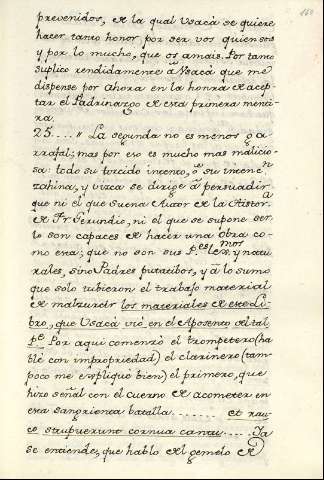 160
prevenidos, de la qual Vsacà se quiere
hacer tanto honor por ser vos quien sois
y por lo mucho, que os amais. Por tanto
suplico rendidamente à Vsacà que me
dispense por ahora en la honra de acep-
tar el Padrinazgo de esta primera menti-
ra.
25....,, La segunda no es menos ga-
rrafal; mas por eso es mucho mas malicio-
sa: todo su torcido intento, ò su
zahina, y vizca se dirige à persuadir
que ni el que suena Autor de la Histora
de Fr. Gerundio, ni el que se supone ser-
lo son capaces de hacer una obra co-
mo esta; que no son sus P.es lex.mos y natu-
rales, sino Padres putatibos, y à lo sumo
que solo tubieron el trabajo material
de malzurcir los materiales de este Li-
bro, que Vsacà viò en el Aposento del tal
P.e Por aqui comenzò el trompetero (ha-
blè con impropriedad) el clarinero (tam-
poco me expliquè bien) el primero, que
hizo señal con el cuerno de acometer en
esta sangrienta batalla........ et rau-
co strepuerunt cornua cantu..... Ya
se entiende, que hablo del gemelo de